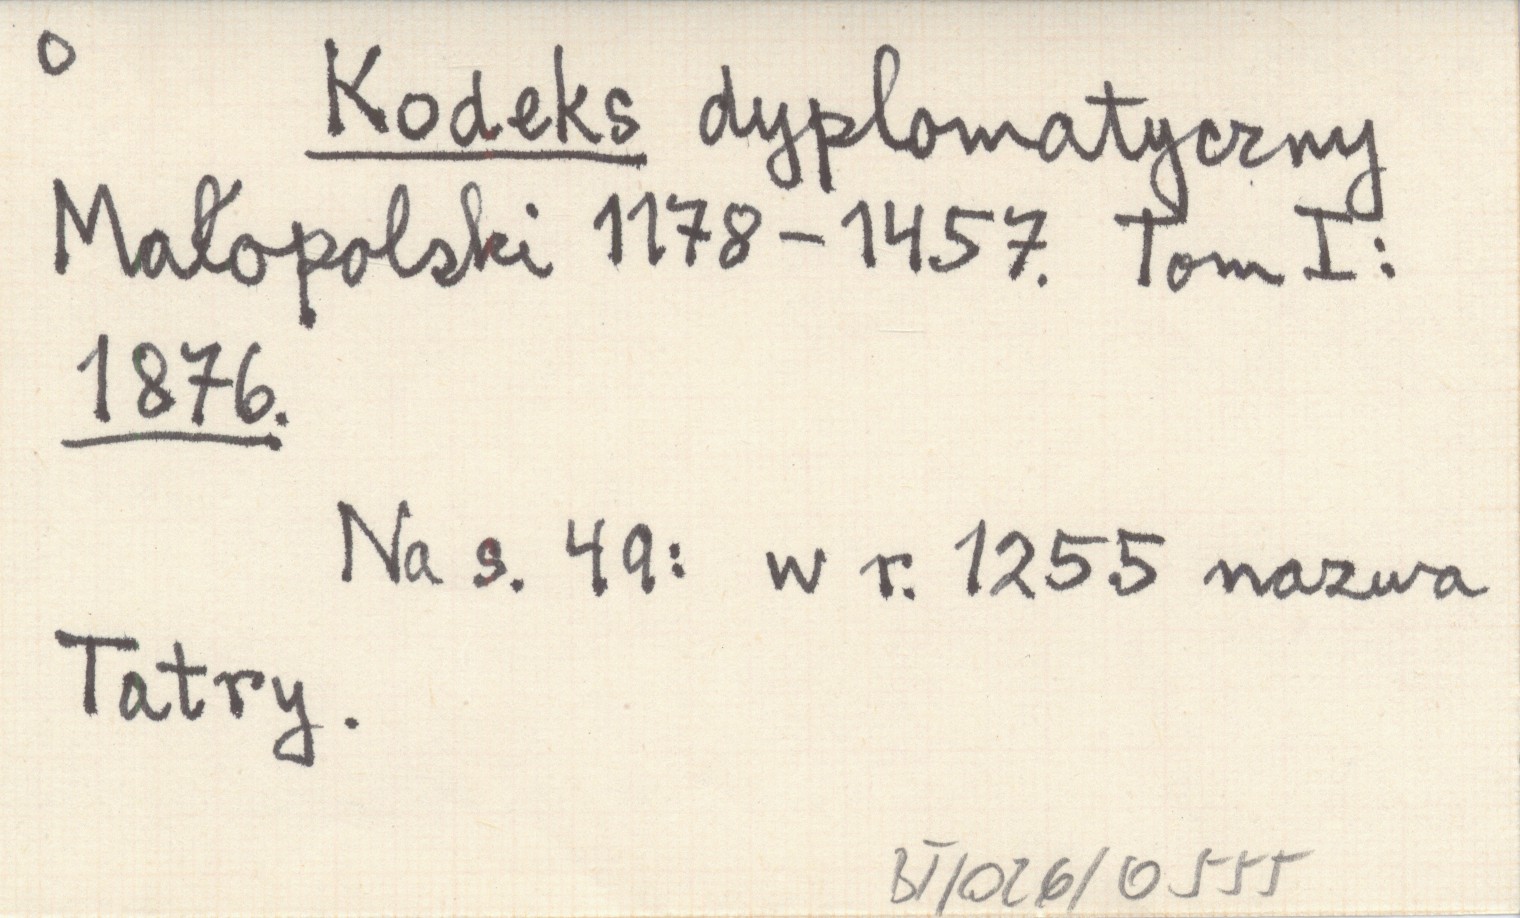 o Kodeks dyplomatyczny
Małopolski 1178-1457. Tom I:
1876.
Na s. 49: w r. 1255 nazwa
Tatry.
BT/026/0555